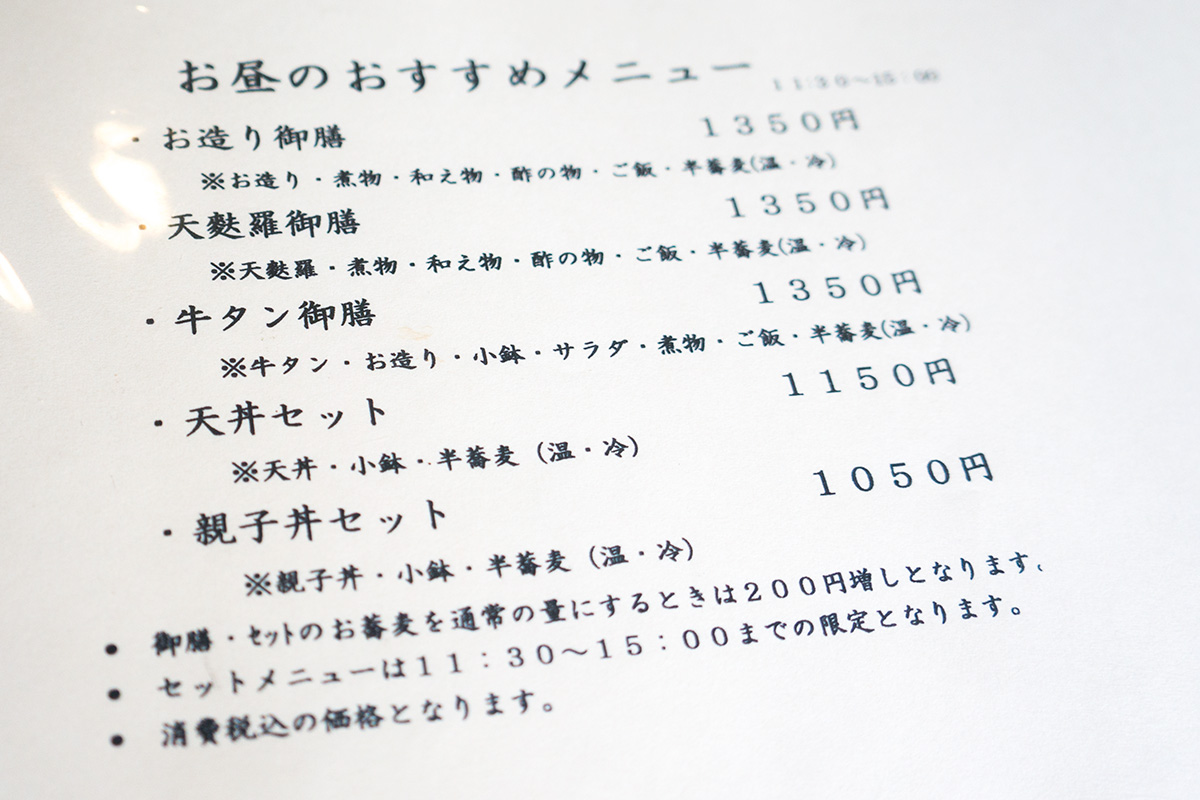 お昼のおすすめメニュー 11:30～15:00
・お造り御膳 1350円
※お造り・煮物・和え物・酢の物・ご飯・半蕎麦(温・冷)
・天麩羅御膳 1350円
※天麩羅・煮物・和え物・酢の物・ご飯・半蕎麦(温・冷)
・牛タン御膳 1350円
※牛タン・お造り・小鉢・サラダ・煮物・ご飯・半蕎麦(温・冷)
・天丼セット 1150円
※天丼・小鉢・半蕎麦（温・冷）
・親子丼セット 1050円
※親子丼・小鉢・半蕎麦（温・冷）
● 御膳・ｾｯﾄのお蕎麦を通常の量にするときは200円増しとなります、
● セットメニューは11：30～15：00までの限定となります。
● 消費税込の価格となります。